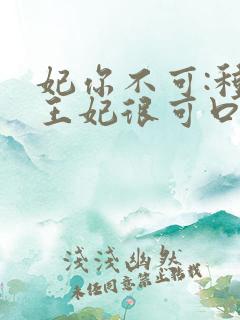 妃你不可:种
王妃很可口
淺淺幽然
未经同意禁止转载